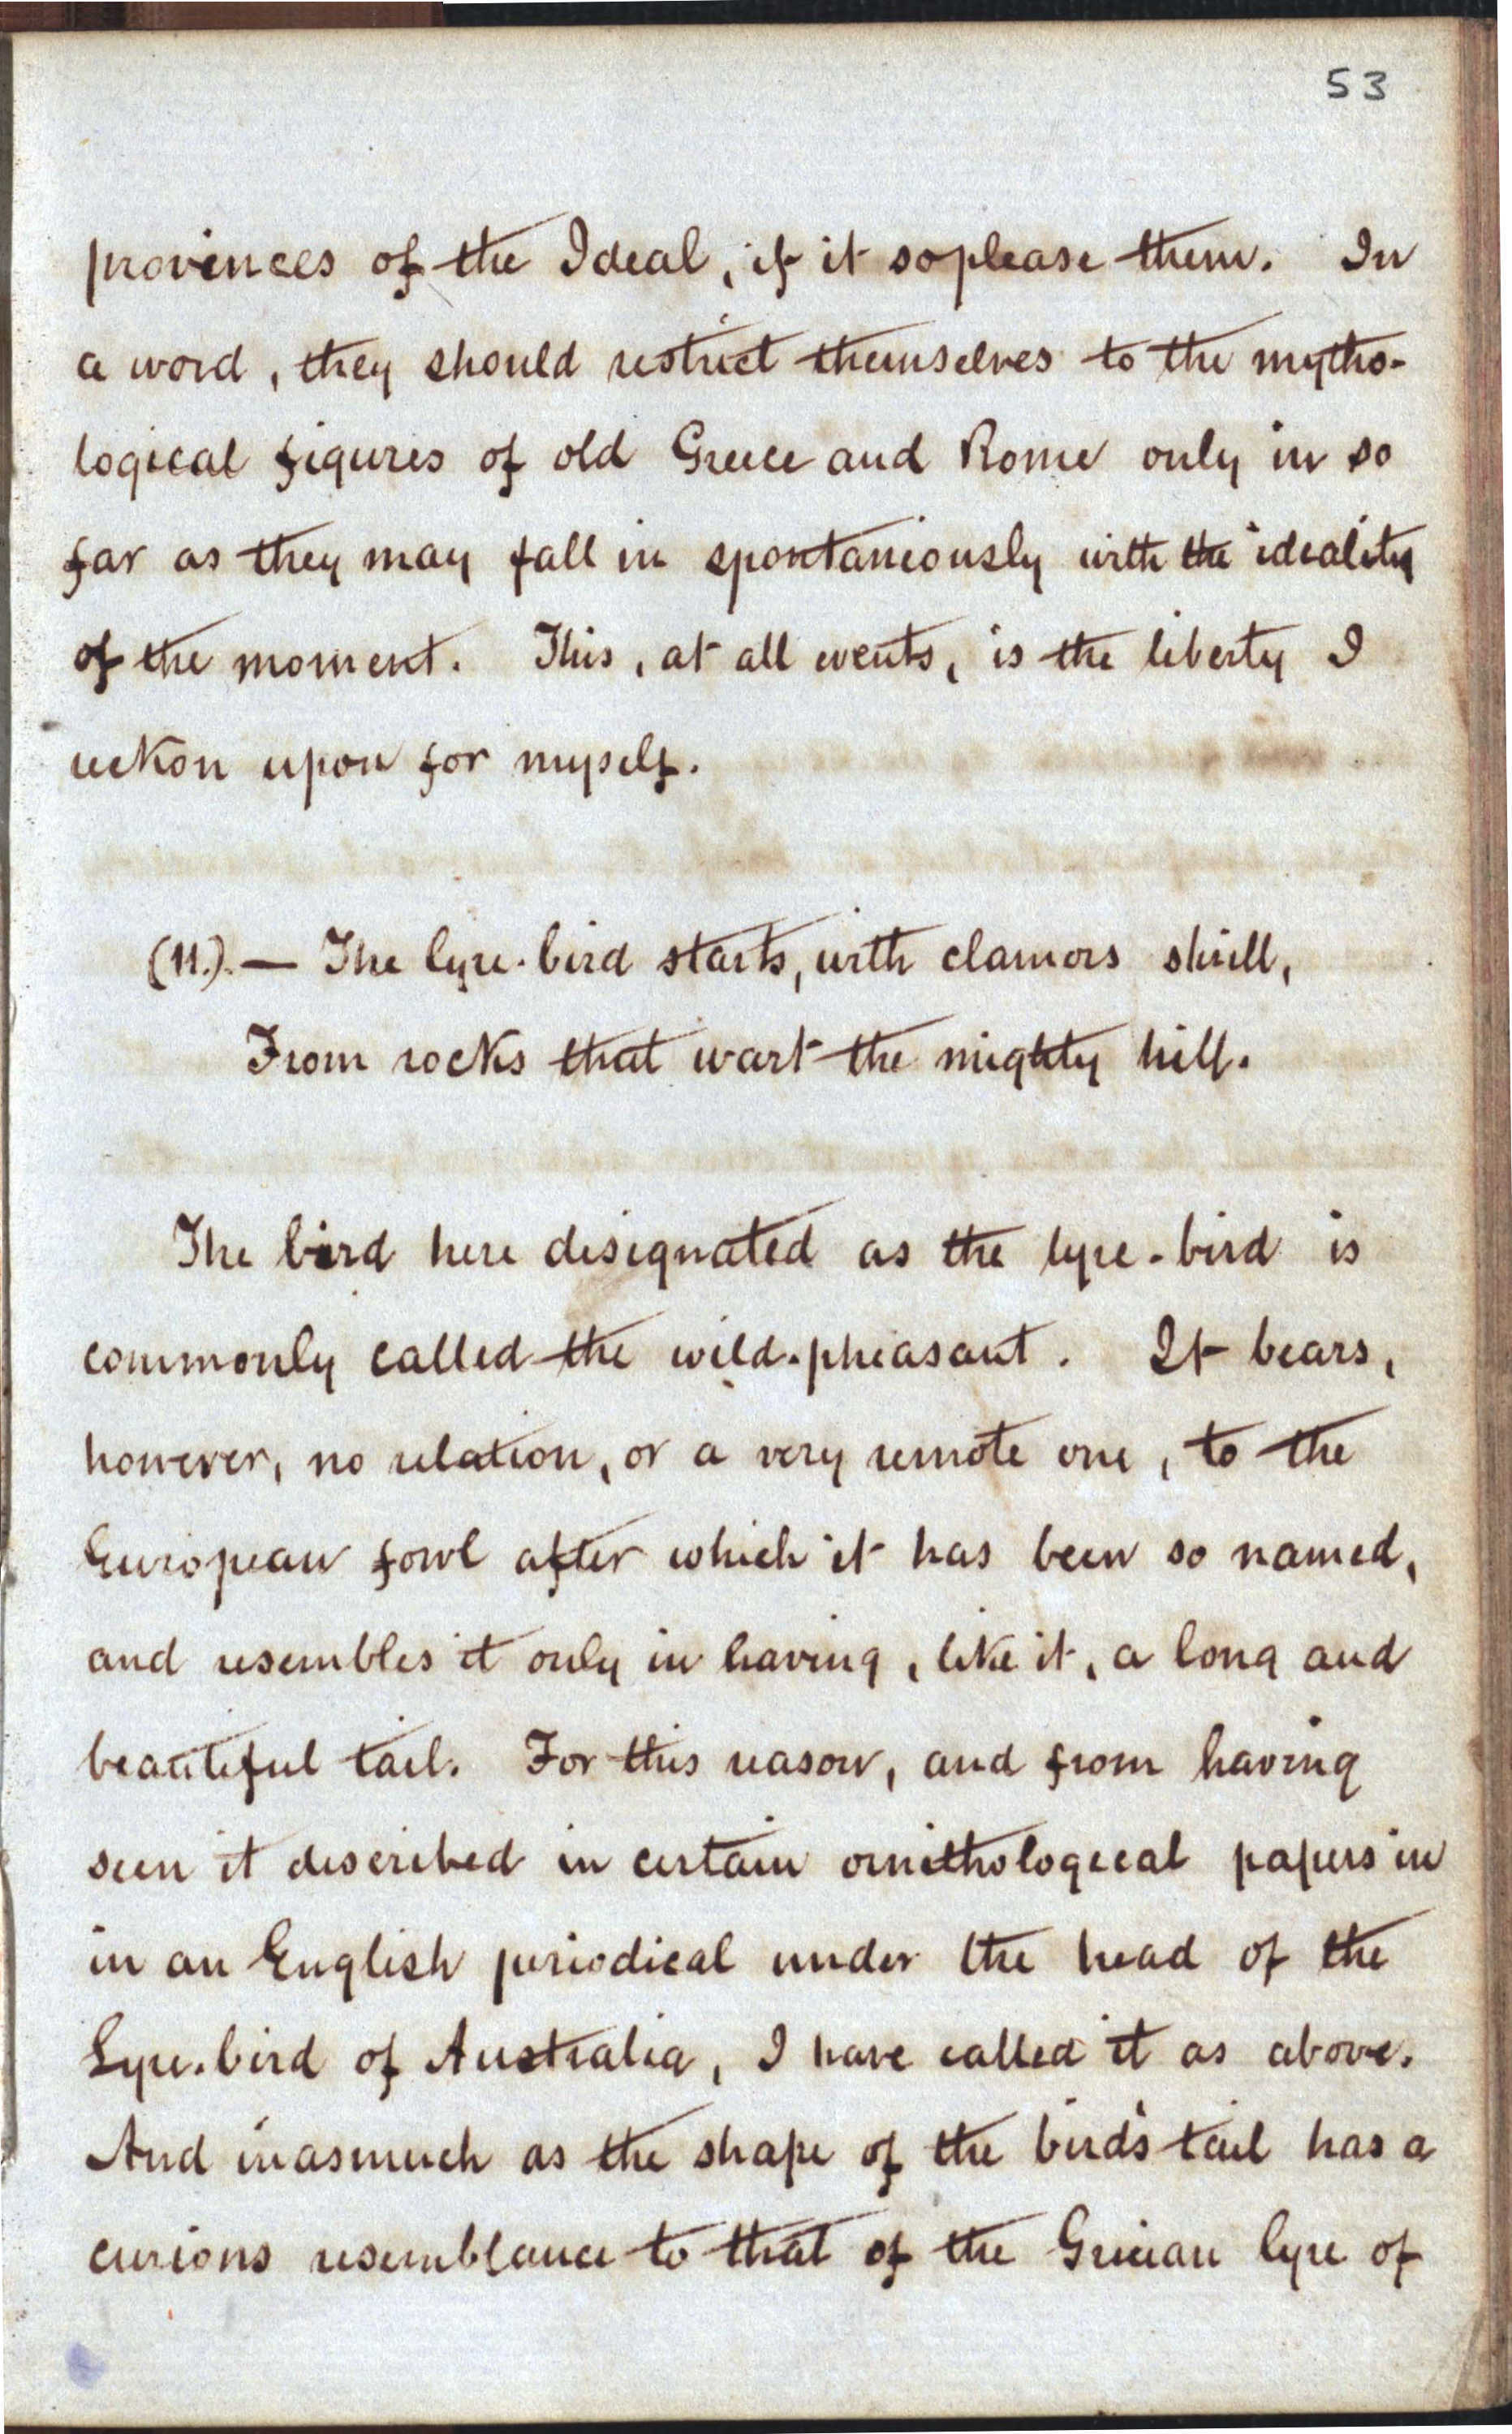 53
provinces of the Ideal, if it so please them. In
a word, they should restrict themselves to the mytho-
logical figures of old Greece and Rome only in so
far as they may fall in spontaneously with the ideality
of the moment. This, at all events, is the liberty I
reckon upon for myself.
(11.).— The lyre-bird starts, with clamors shrill,
From rocks that wart the mighty hill.
The bird here designated as the lyre-bird is
commonly called the wild-pheasant. It bears,
however, no relation, or a very remote one, to the
European fowl after which it has been so named,
and resembles it only in having, like it, a long and
beautiful tail. For this reason, and from having
seen it described in certain ornithological papers in
in an English periodical under the head of the
Lyre-bird of Australia, I have called it as above.
And inasmuch as the shape of the bird's tail has a
curious resemblance to that of the Grecian lyre of